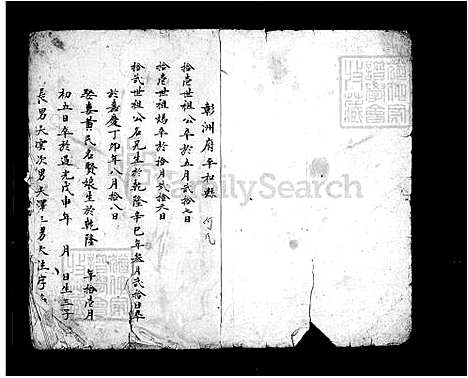 彰洲府平和縣 何氏
拾壱世祖公卒於五月貳拾七日
拾壱世祖媽卒於拾月貳拾六日
拾貳世祖公名元生於乾隆辛巳年叁月貳拾日卒
於嘉慶丁卯年八月拾八日
娶妻黃氏名賢娘生於乾隆 年拾壱月
初五日卒於道光戊申年 月 日生三子
長男天 次男天澤三男天生
FamilySearch